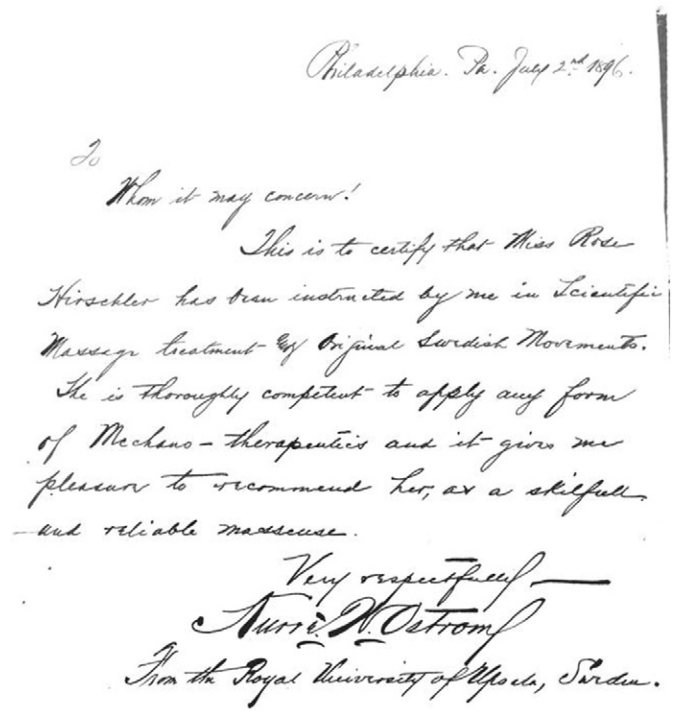 Philadelphia. Pa. July 2nd 1896.
To
Whom it may concern!
This is to certify that Miss Rose
Hirschler has been instructed by me in Scientific
Massage treatment & Original Swedish Movements.
She is thoroughly competent to apply any form
of Mechano-therapeutics and it gives me
pleasure to recommend her, as a skilfull
and reliable masseuse.
Very respectfully
Kurre W. Ostrom
From the Royal University of Upsala, Sweden.